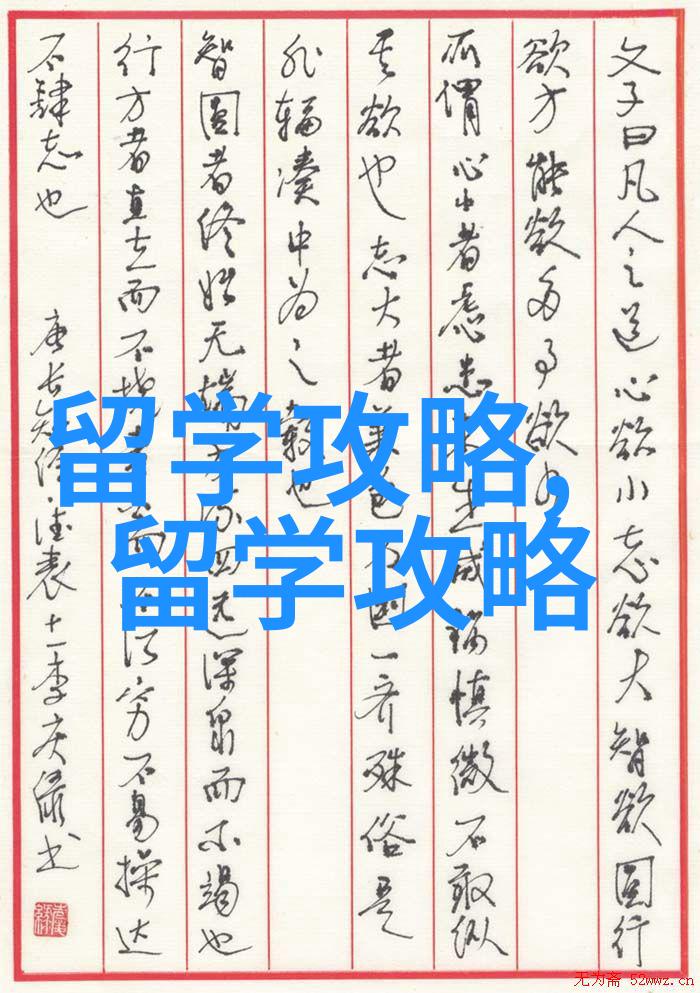 文子曰凡人之道心欲小志欲大智欲圆行
欲方能欲多事欲
所谓心小者虑患未生戒祸慎微不敢纵
其欲也志大者兼包万国一齐殊俗是
非辐凑中为之毂也
智圆者终始无端方流四远深泉而不竭也
行方者直立而不挠素白而不污穷不易操达
不肆志也
唐长短经德表十一李庆绿书
留学攻略,
留学攻略
无为斋 52wwz.cn